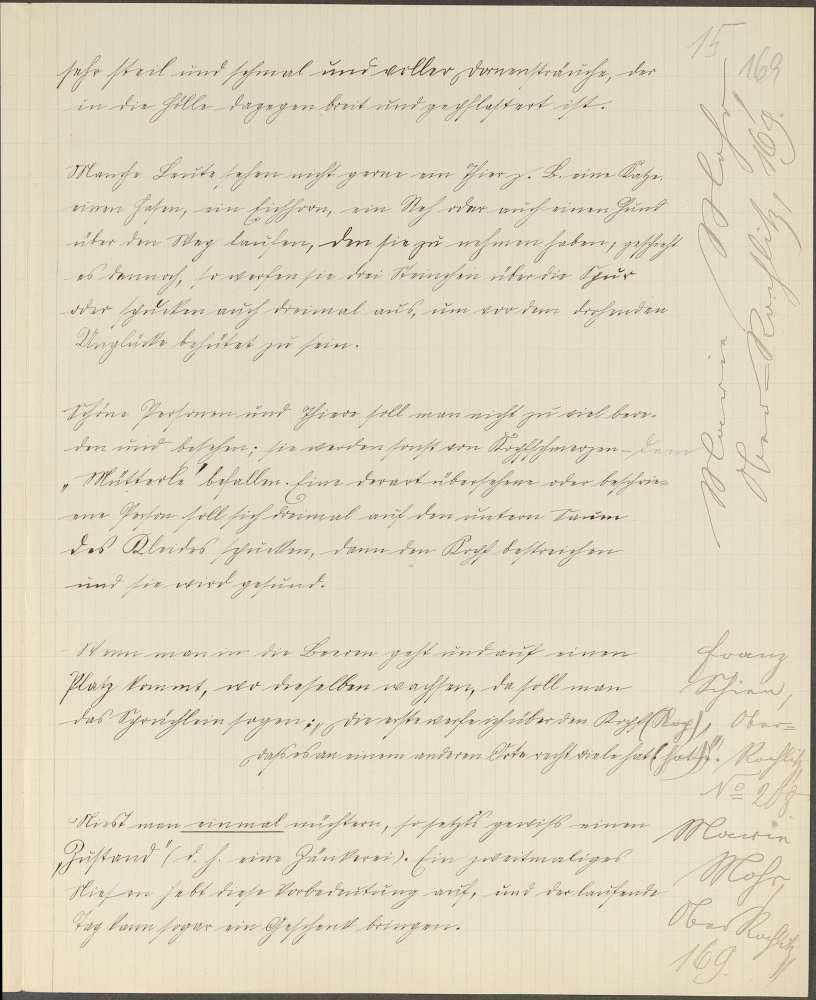 15
169
sehr steil und schmal und voller Dornensträuche, der
in die Hölle dagegen breit und gepflastert ist.
Manche Leute sehen nicht gerne ein Thier z. B. eine Katze,
einen Hasen, ein Eichhorn, ein Reh oder auch einen Hund
über den Weg laufen, den sie zu nehmen haben; geschieht
es dennoch, so werfen sie drei Steinchen über die Spur
oder spucken auch dreimal aus, um vor dem drohenden
Unglücke behütet zu sein.
Marie Mohr
Ober-Rochlitz, 169.
Schöne Personen und Thiere soll man nicht zu viel bere-
den und besehen; sie werden sonst von Kopfschmerzen – dem
„Mütterle" befallen. Eine derart übersehene oder beschrie-
ene Person soll sich dreimal auf den untern Saum
des Kleides spucken, dann den Kopf bestreichen
und sie wird gesund.
Wenn man in die Beeren geht und auf einen
Platz kommt, wo dieselben wachsen, da soll man
das Sprüchlein sagen: „Die erste werfe ich über den Kopf (Kop),
dass es an einem anderen Orte recht viele hat (hot)".
Franz
Schien,
Ober-
Rochlitz
No
Niest man einmal nüchtern, so setzt's gewiss einen
„Zustand" (d. h. eine Zänkerei). Ein zweitmaliges
Niesen hebt diese Vorbedeutung auf, und der laufende
Tag kann sogar ein Geschenk bringen.
Marie
Mohr,
Ober Rochlitz
169.